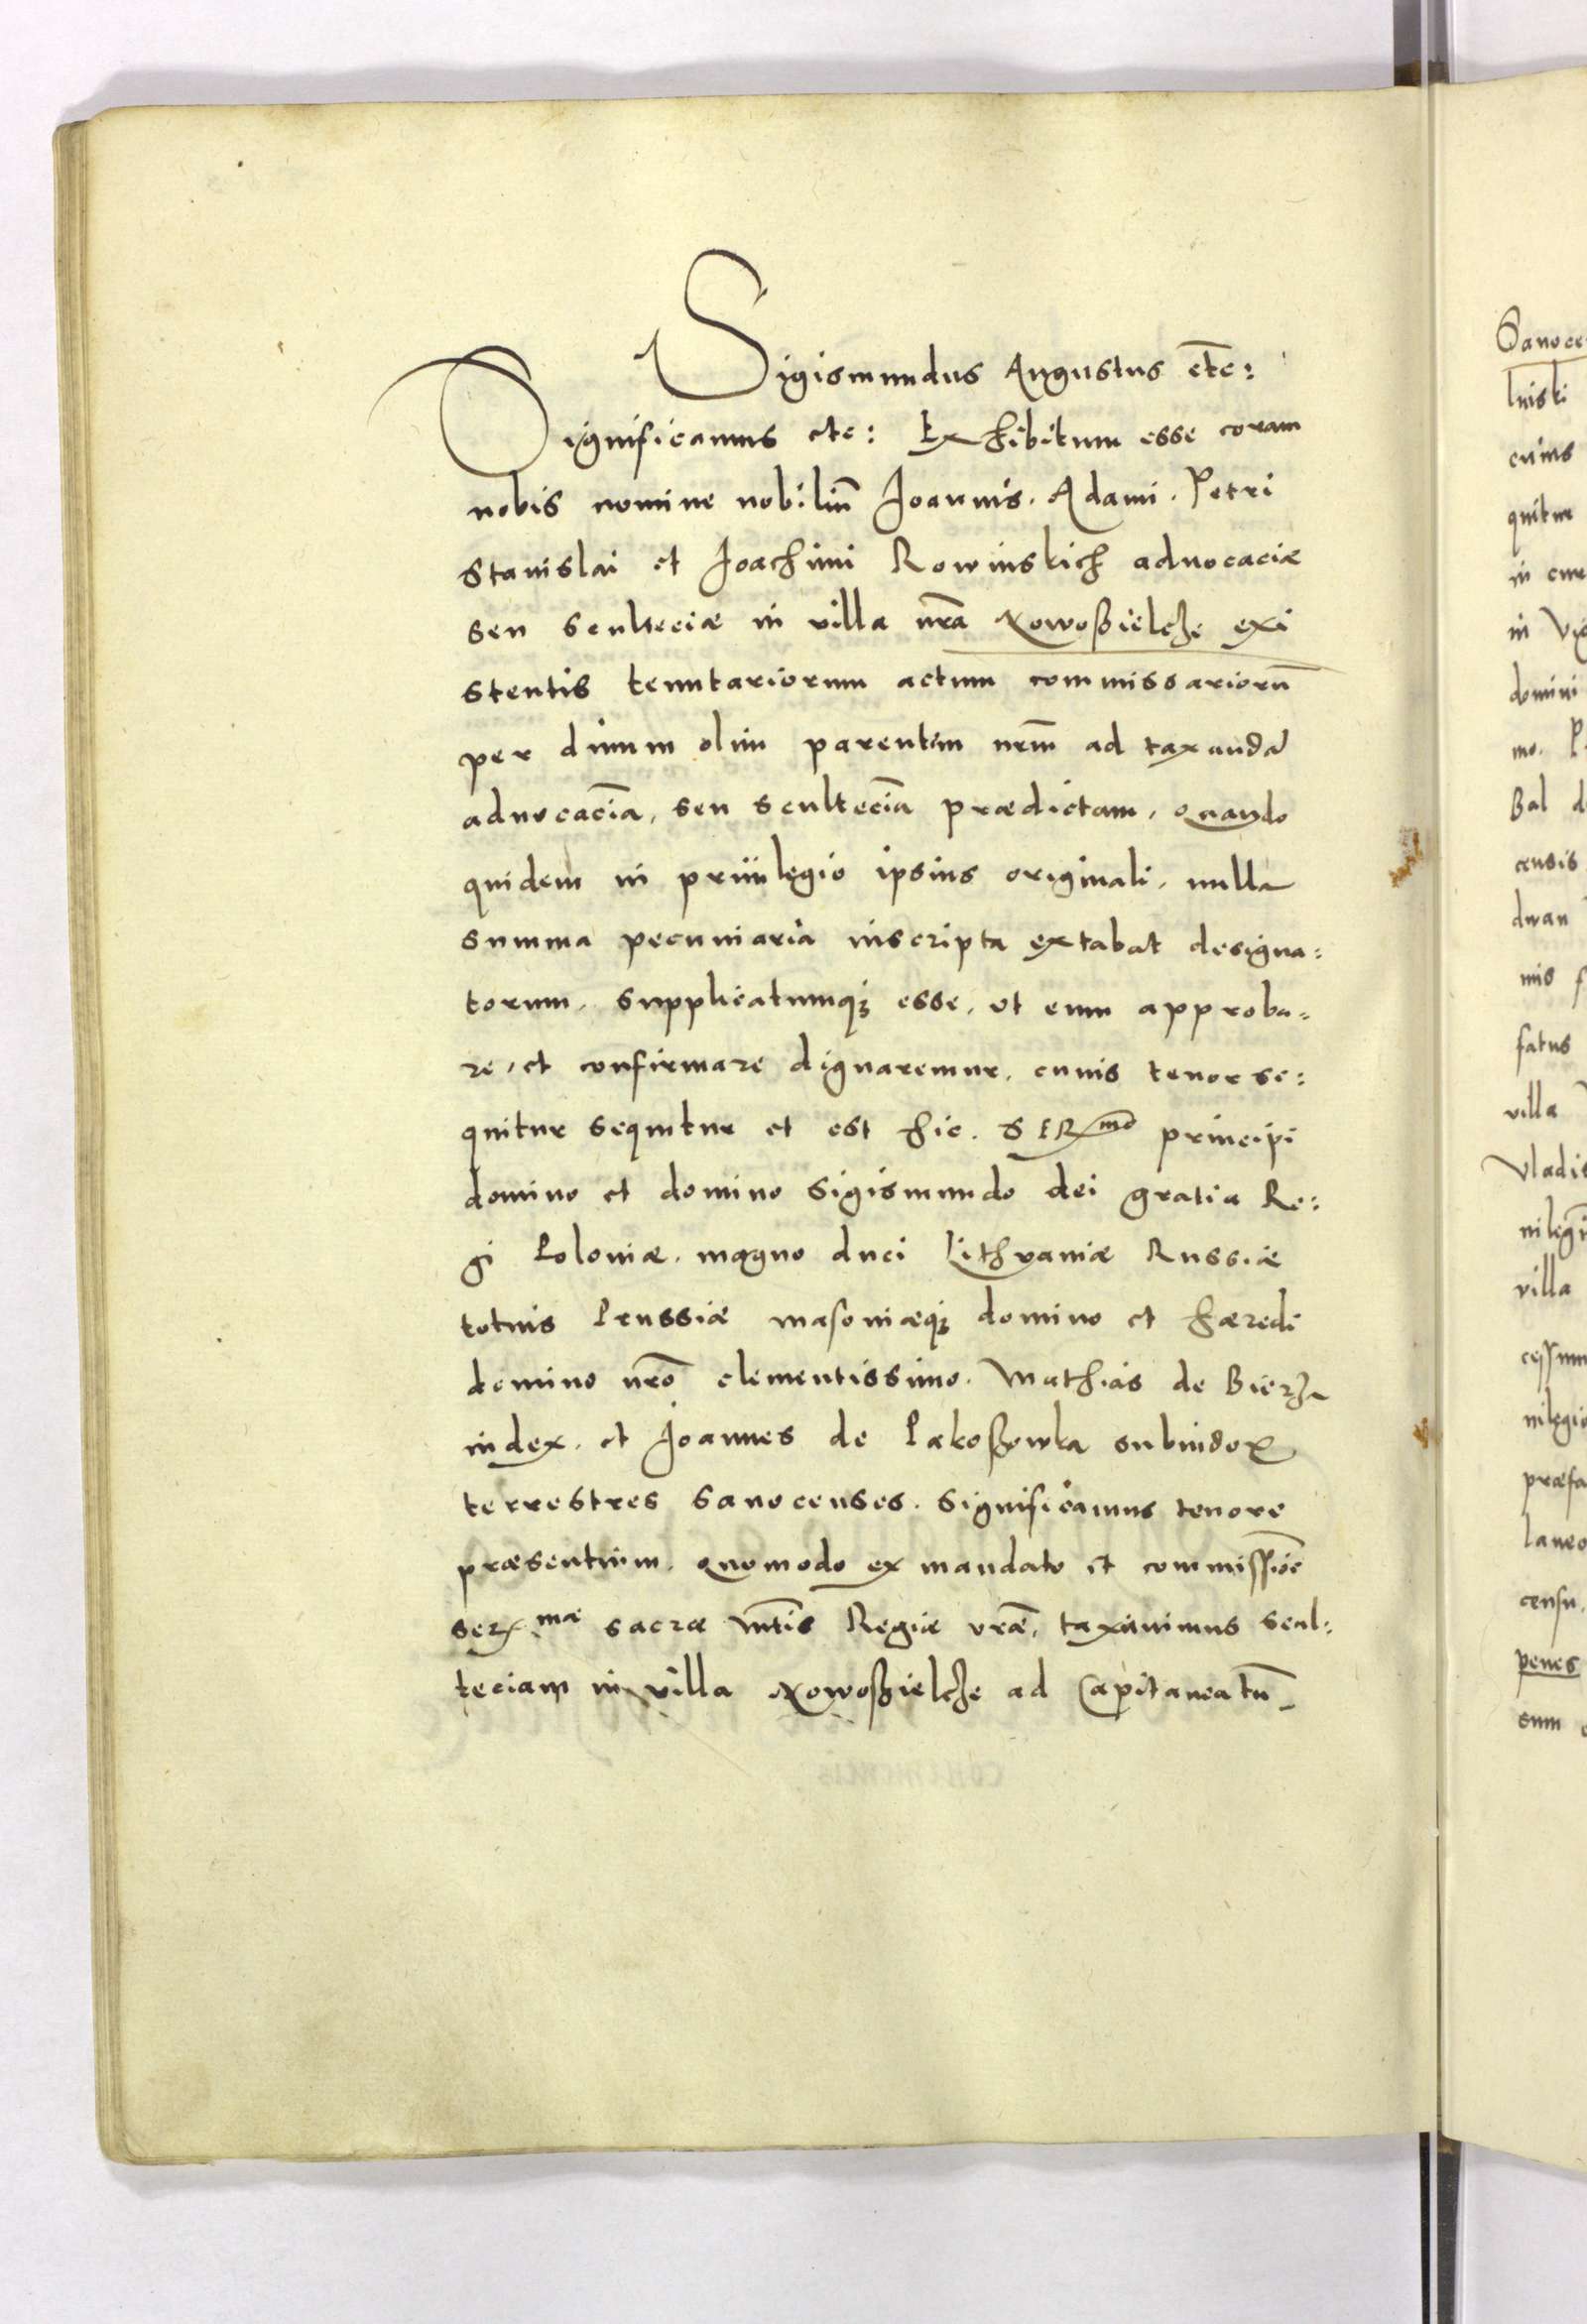 Sigismundus Augustus etc:
Significamus etc: Exhibitum esse coram
nobis nomine nobiliū Joannis. Adami. Petri
Stanislai et Joachimi Rowinskich aduocaciæ
seu sculteciæ in villa nrā Nowoßielcze exi
stentis tenutariorum actum commissariorū
per diuum olim parentem nrm̄ ad taxandā
aduocaciā, seu sculteciā prædictam, Quando
quidem in priuilegio ipsius originali, nulla
summa pecuniaria inscripta extabat designa:
torum. supplicatumqꝫ esse, vt eum approba:
re, et confirmare dignaremur, cuius tenor se:
quitur sequitur et est hic. SERmo principi
domino et domino Sigismundo dei gratia Re:
gi Poloniæ. magno duci Lithvaniæ Russiæ
totius Prussiæ masouiæqꝫ domino et hæredi
domino nrō clementissimo. Mathias de Bierza
iudex. et Joannes de Pakoßowka subiudex
terrestres Sanocenses. Significamus tenore
præsentium. Quomodo ex mandato et commissiōe
serx mæ sacræ Mtīs Regiæ vrǣ, taxauimus scul:
teciam in villa Nowoßielcze ad Capitaneatū
Sanoce
luiski
cuius
quitur
in cur
in Vig
domini
mo. P
Bal d
censis
dwan
mis f
fatus
villa
Vladis
uilegi
villa
cessum
uilegio
præfa
laneo
censu,
penes
sum